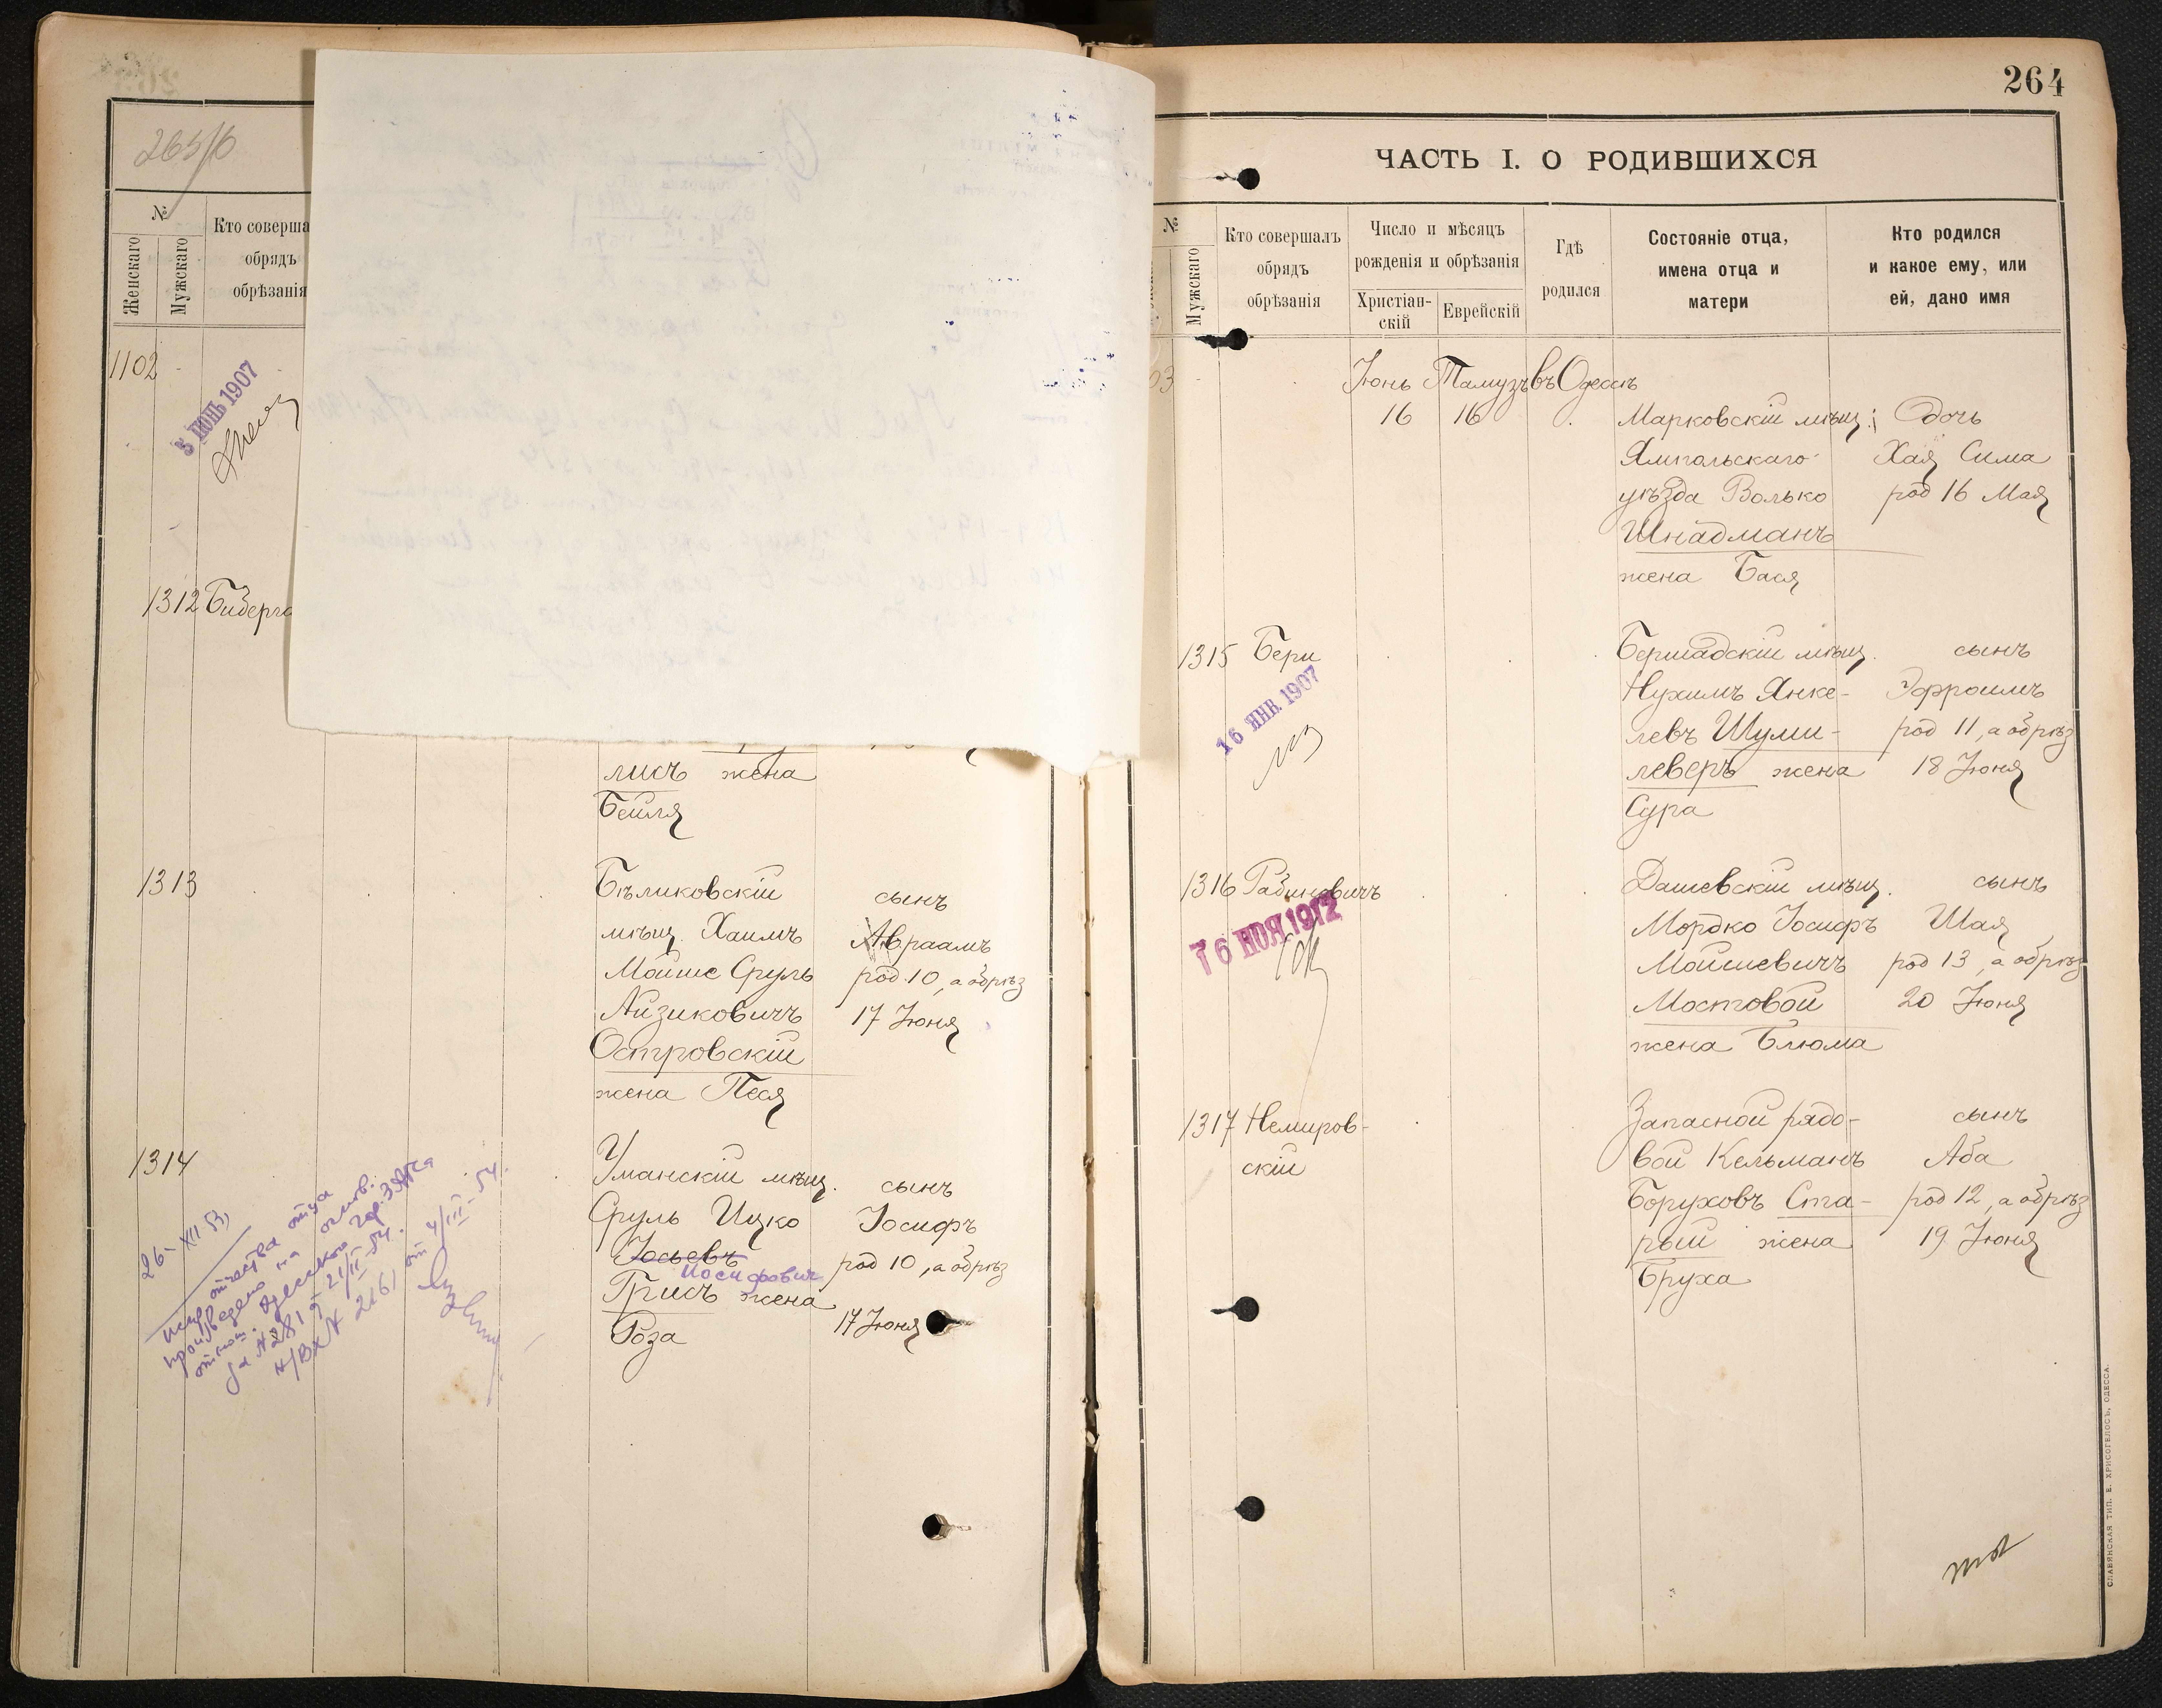 265/6
№
Женскаго
Мужскаго
Кто соверша
обрядъ
обрѣзанія
1102
5 ІЮНЬ 1907
1312 Бидерма
лисъ жена
Бейля
1313
Бѣликовскій
сынъ
мѣщ. Хаимъ
Авраамъ
Мойше Сруль
род 10, а обрѣз
Айзиковичъ
17 Іюня
Островскій
жена Песя
1314
Уманскій мѣщ.
сынъ
Сруль Ицко
Іосифъ
Іосьевъ
Иосифович
род 10, а обрѣз
Грисъ жена
17 Іюня
Роза
26-XII 53
испр. отчества отца
произведено на основ.
отнош. Одесского гор. ЗАГСа
за № 281 от 21/II-54.
н/Вх № 2161 от 4/III-54.
264
ЧАСТЬ I. О РОДИВШИХСЯ
№
Мужскаго
Кто совершалъ
обрядъ
обрѣзанія
Число и мѣсяцъ
рожденія и обрѣзанія
Христіан-
скій
Еврейскій
Гдѣ
родился
Состояніе отца,
имена отца и
матери
Кто родился
и какое ему, или
ей, дано имя
03
Іюнь Тамузъ въ Одессѣ
16 16
Марковскій мѣщ.
Дочь
Ямпольскаго
Хая Сима
уѣзда Волько
род 16 Мая
Шнадманъ
жена Бася
1315 Бери
16 ЯНВ. 1907
Бершадскій мѣщ.
сынъ
Нухимъ Янке-
Эфроимъ
левъ Шуми-
род 11, а обрѣз
леверъ жена
18 Іюня
Сура
1316 Рабиновичъ
16 НОЯ 1912
Дашевскій мѣщ.
сынъ
Мордко Іосифъ
Шая
Мойшевичъ
род 13, а обрѣз
Мостовой
20 Іюня
жена Блюма
1317 Немиров-
скій
Запасной рядо-
сынъ
вой Кельманъ
Аба
Боруховъ Ста-
род 12, а обрѣз
рый жена
19 Іюня
Бруха
СЛАВЯНСКАЯ ТИП. Е. ХРИСОГЕЛОСЪ, ОДЕССА.